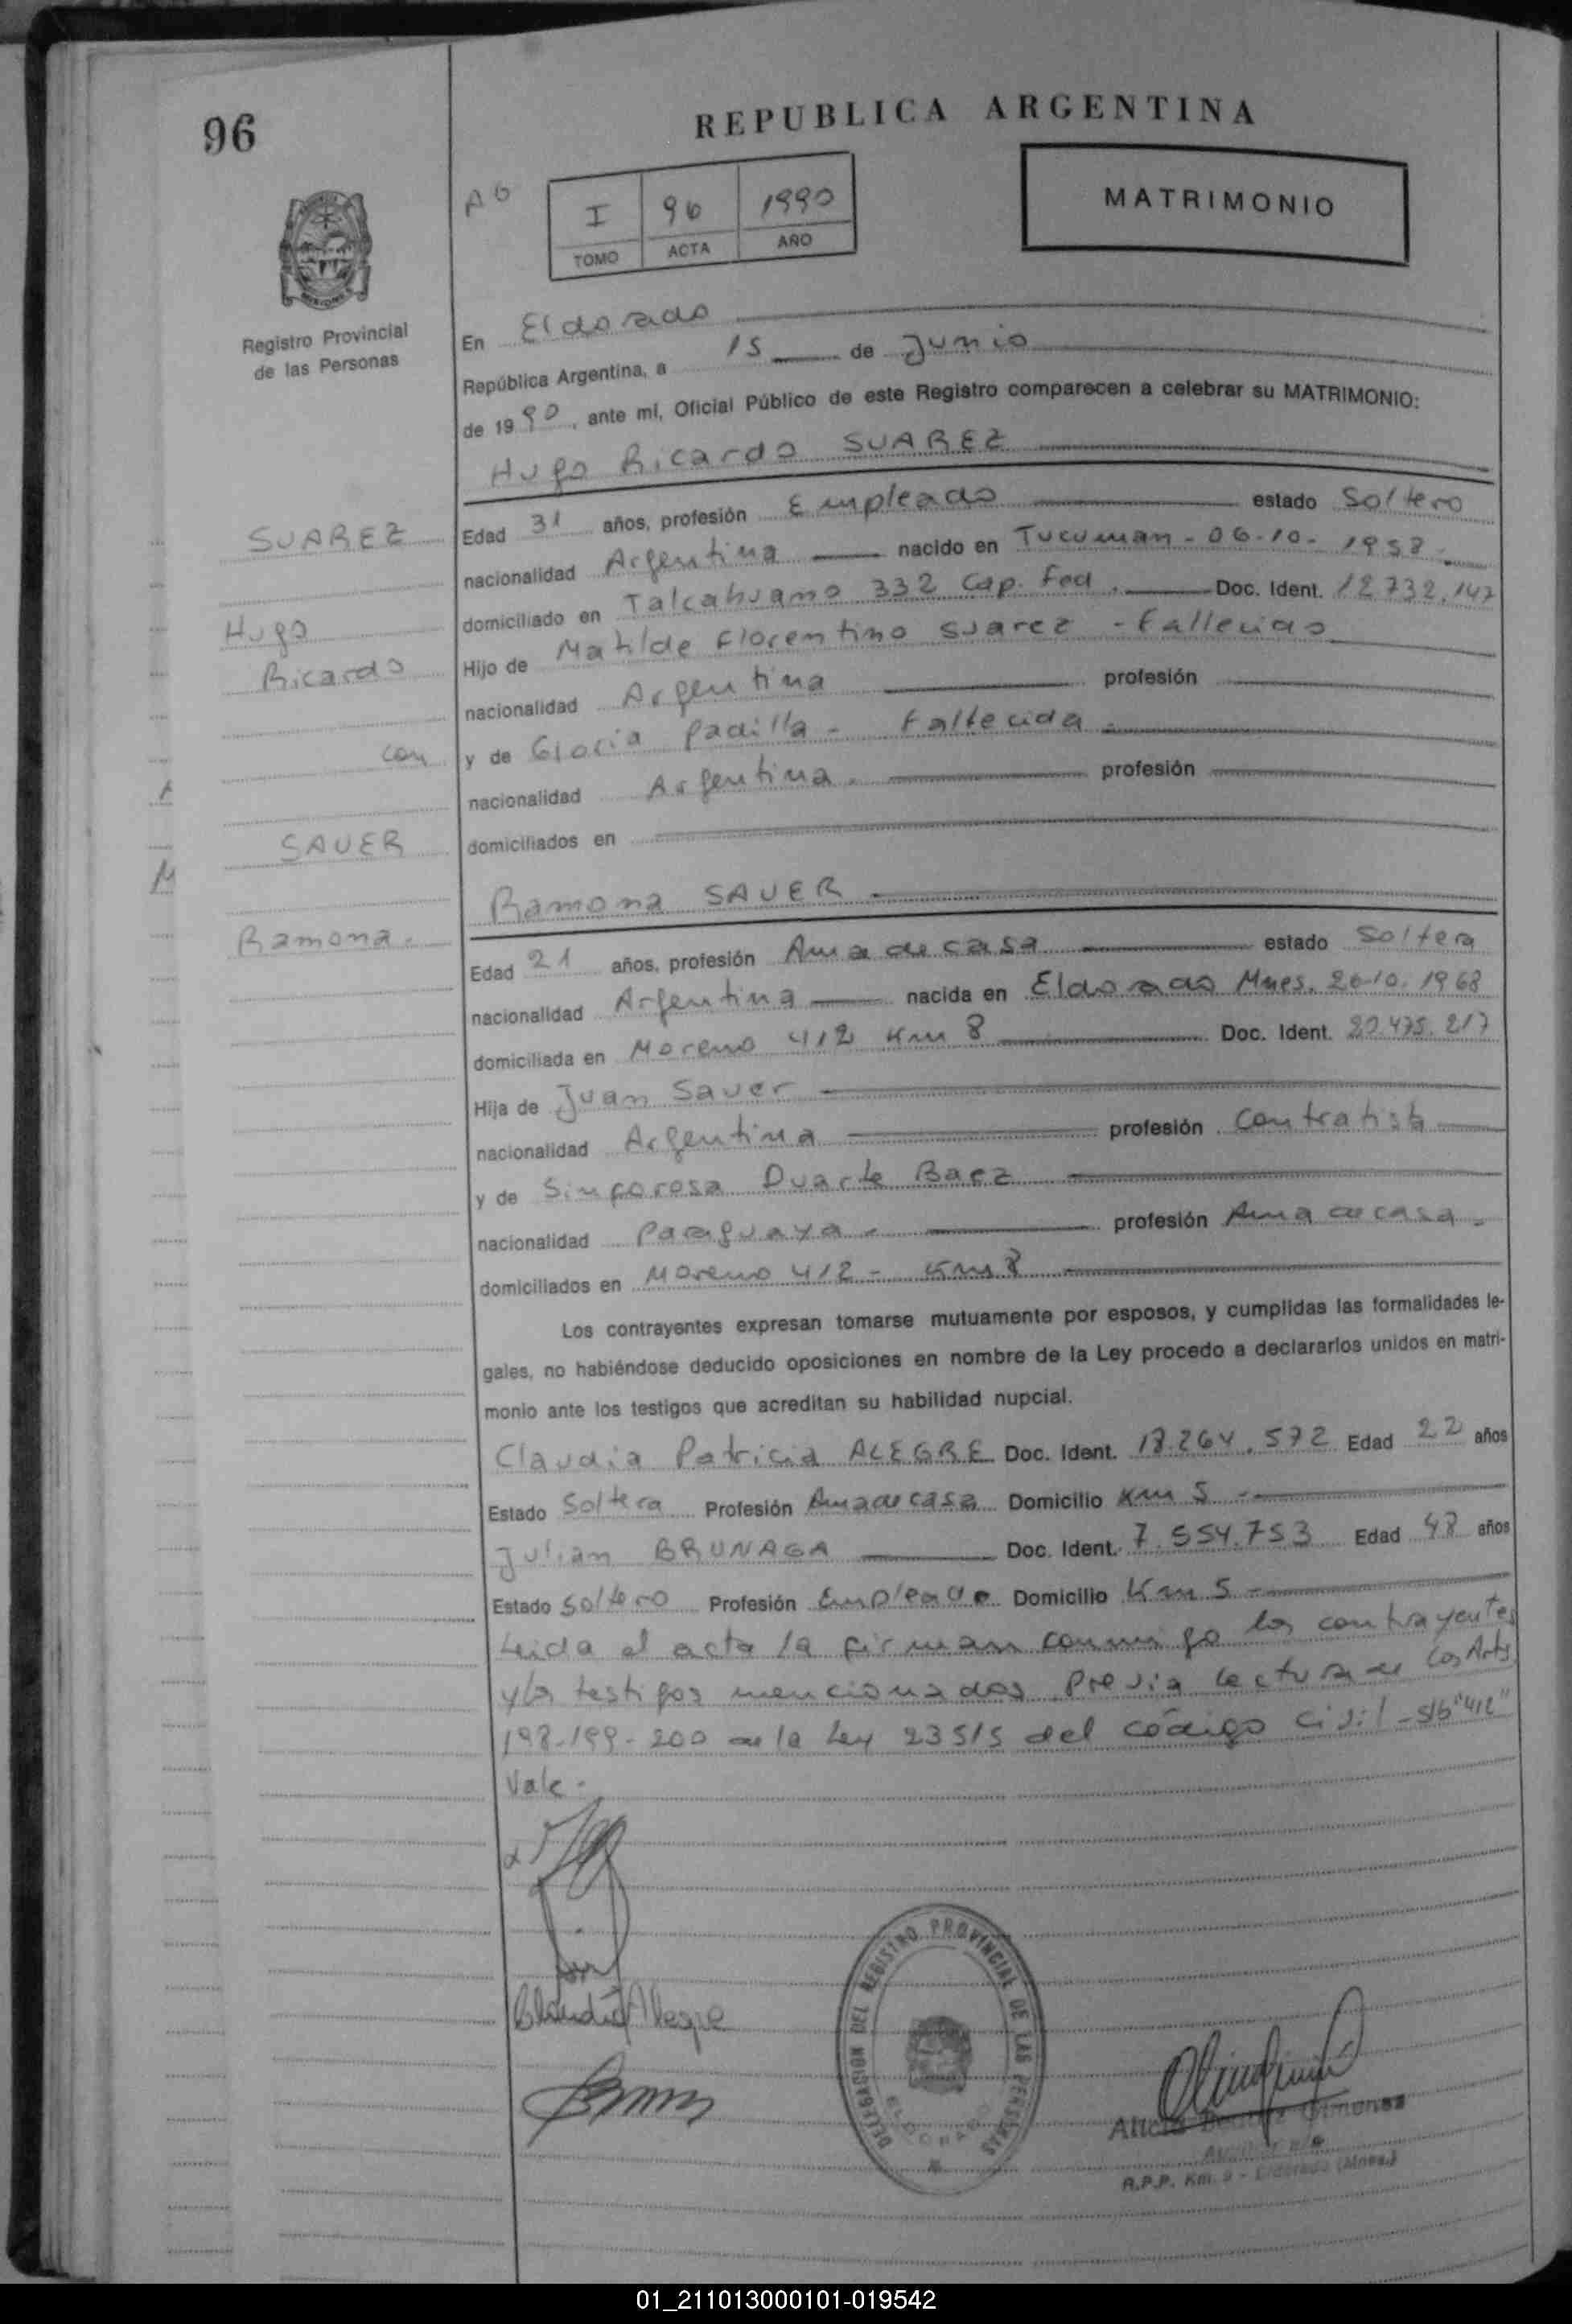 96
REPUBLICA ARGENTINA
A6
I 96 1990
TOMO ACTA AÑO
MATRIMONIO
MISIONES
Registro Provincial
de las Personas
En Eldorado
República Argentina, a 15 de Junio
de 1990, ante mí, Oficial Público de este Registro comparecen a celebrar su MATRIMONIO:
Hugo Ricardo SUAREZ
SUAREZ
Hugo
Ricardo
con
SAUER
Ramona.
Edad 31 años, profesión Empleado estado Soltero
nacionalidad Argentina nacido en Tucuman - 06-10-1958.
domiciliado en Talcahuano 332 Cap. Fed. Doc. Ident. 12.732.147
Hijo de Matilde Florentino Suarez - Fallecido
nacionalidad Argentina profesión
y de Gloria Padilla - Fallecida -
nacionalidad Argentina. profesión
domiciliados en
Ramona SAUER
Edad 21 años, profesión Ama de casa estado Soltera
nacionalidad Argentina nacida en Eldorado Mnes. 26-10-1968
domiciliada en Moreno 412 Km 8 Doc. Ident. 20.475.217
Hija de Juan Sauer
nacionalidad Argentina profesión Contratista
y de Sinforosa Duarte Baez
nacionalidad Paraguaya - profesión Ama de casa -
domiciliados en Moreno 412 - Km 8
Los contrayentes expresan tomarse mutuamente por esposos, y cumplidas las formalidades le-
gales, no habiéndose deducido oposiciones en nombre de la Ley procedo a declararlos unidos en matri-
monio ante los testigos que acreditan su habilidad nupcial.
Claudia Patricia ALEGRE Doc. Ident. 18.264.572 Edad 22 años
Estado Soltera Profesión Ama de casa Domicilio Km 5 -
Julian BRUNAGA Doc. Ident. 7.554.753 Edad 48 años
Estado Soltero Profesión Empleado Domicilio Km 5 -
Leida el acta la firman conmigo los contrayentes
y los testigos mencionados Previa lectura de los Arts.
198-199-200 de la Ley 23515 del código civil - s/b "412"
Vale -
Claudia Alegre
DELEGACION DEL REGISTRO PROVINCIAL DE LAS PERSONAS
ELDORADO
Alicia Gimenez
Auxiliar
R.P.P. Km. 9 - Eldorado (Mnes.)
01_211013000101-019542